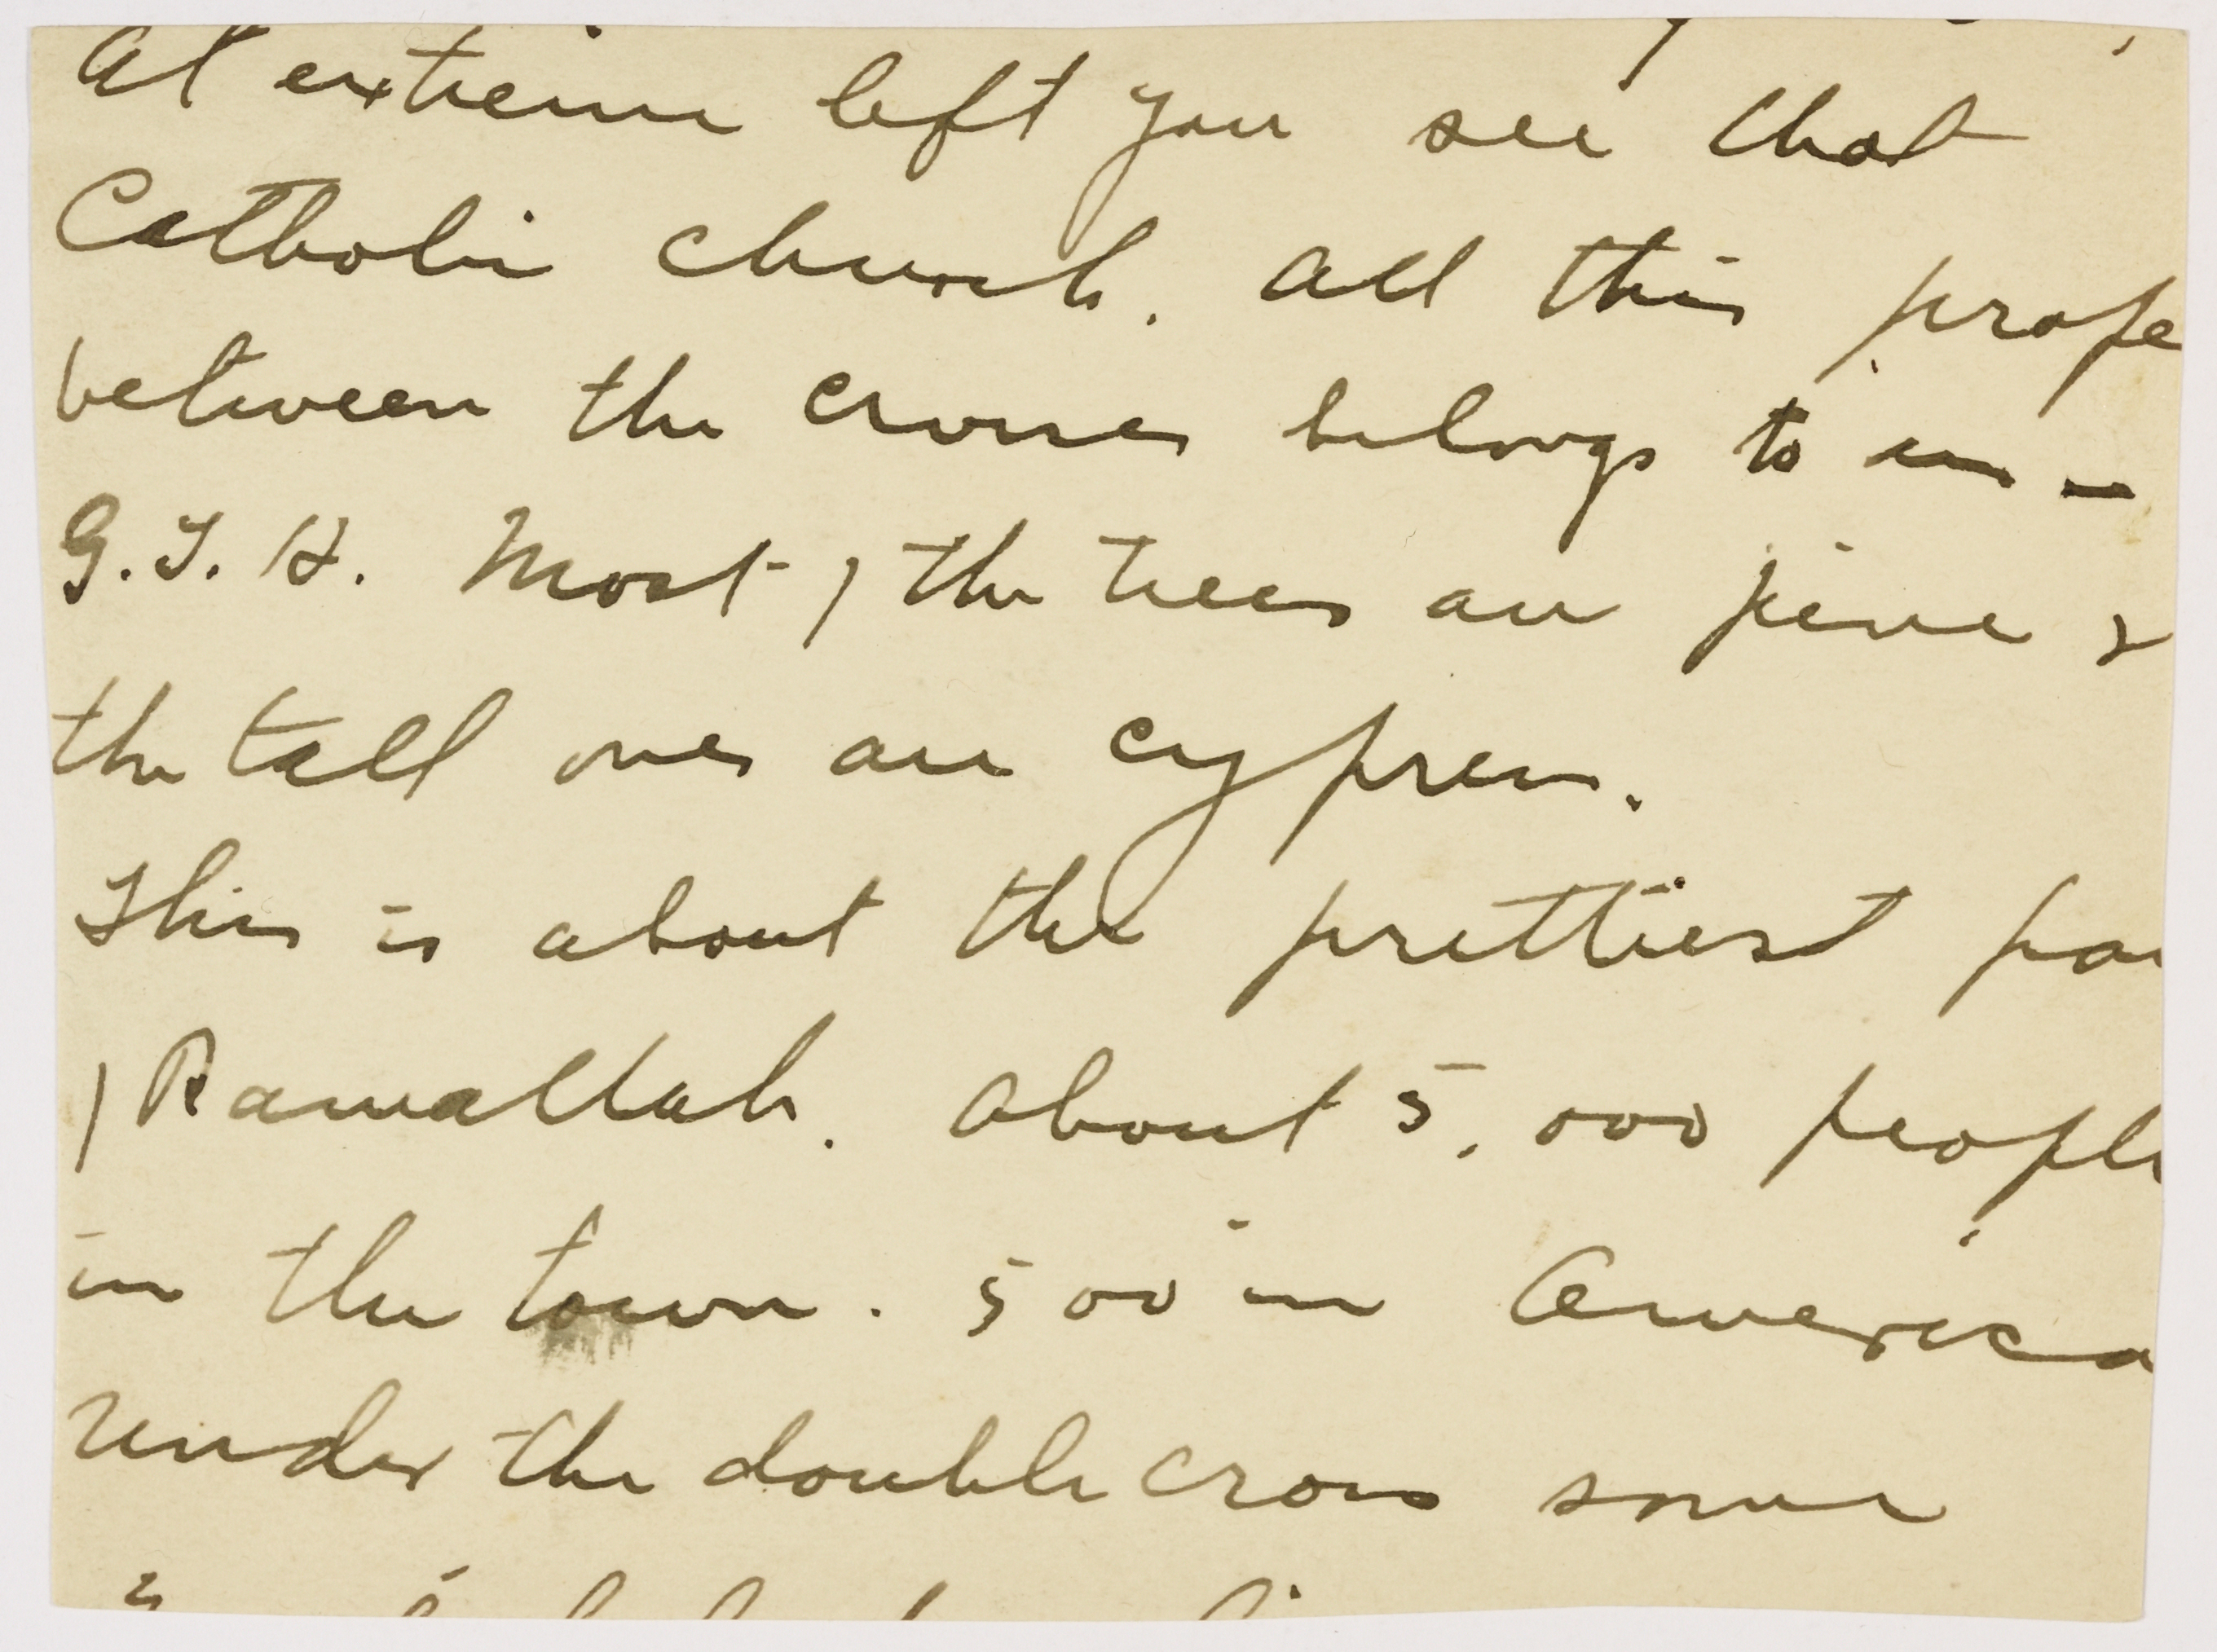 At extreme left you see that
Catholic church. All this prope
between the crosses belongs to us –
G. T. H. Most of the trees are pine &
the tall ones are cypress.
This is about the prettiest par
of Ramallah. About 5,000 people
in the town. 500 in America
Under the double cross some